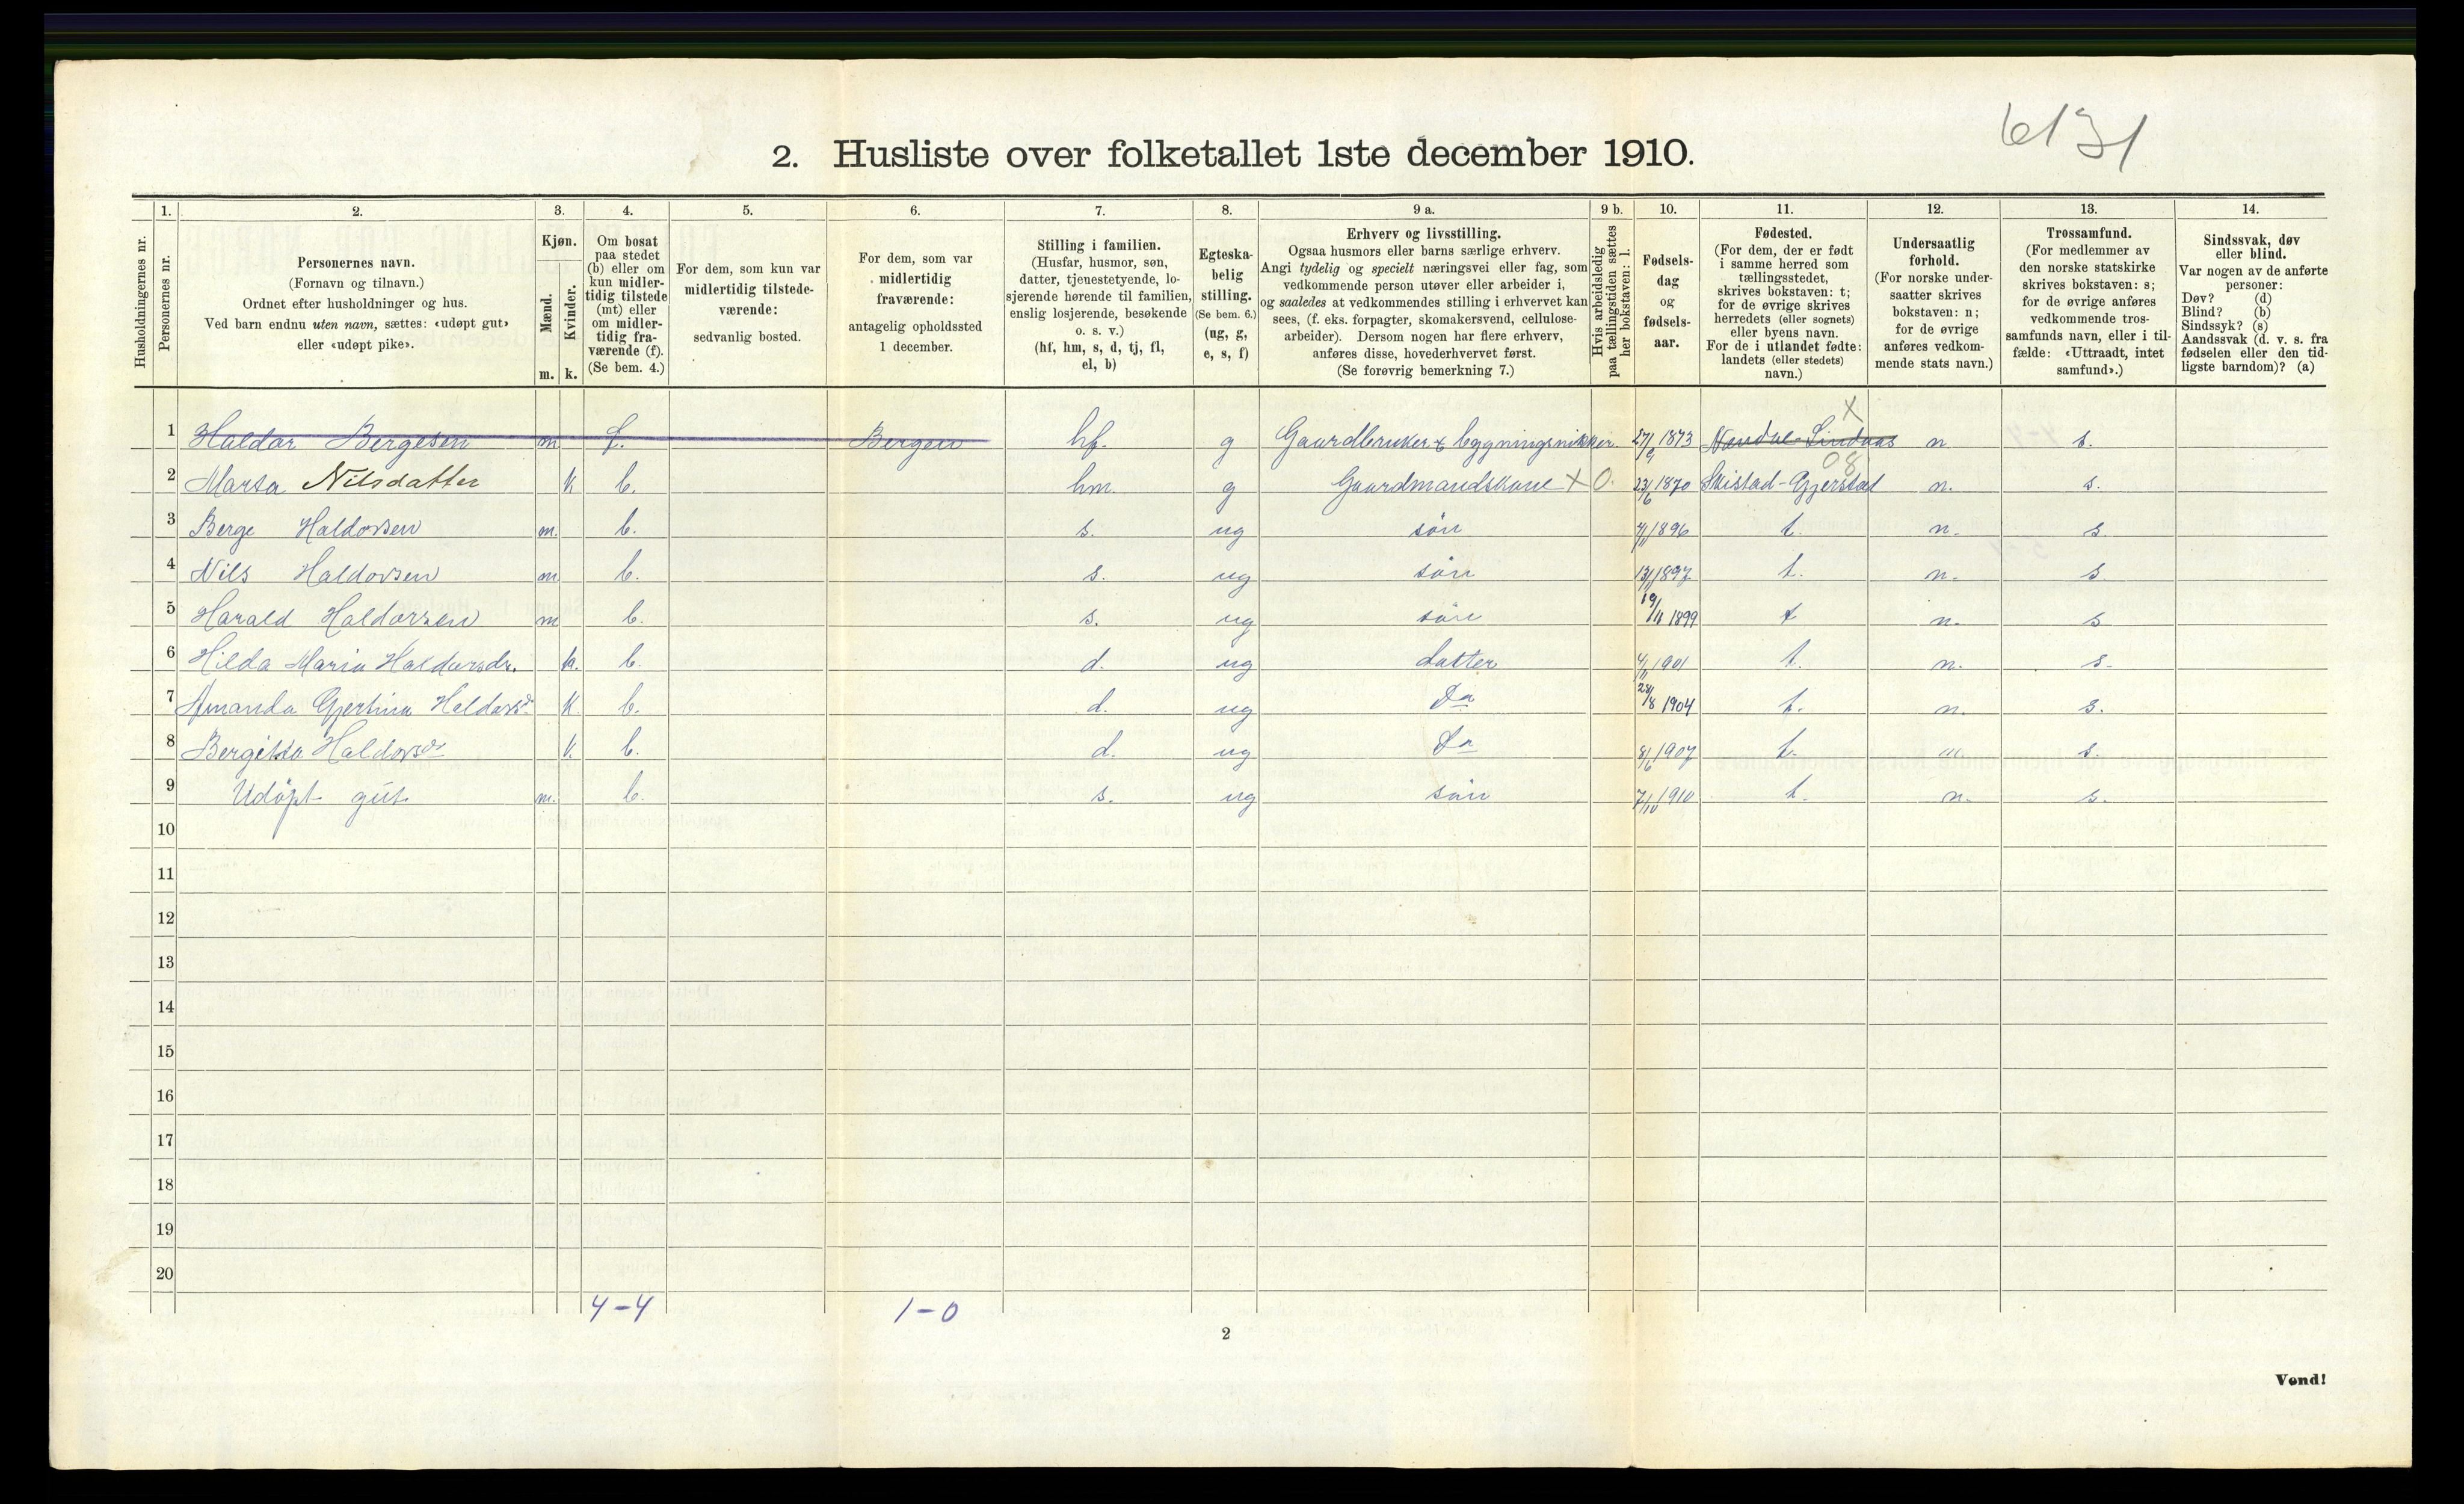 6131
2. Husliste over folketallet 1ste december 1910.
Husholdningernes nr.
1. Personernes nr.
2. Personernes navn.
(Fornavn og tilnavn.)
Ordnet efter husholdninger og hus.
Ved barn endnu uten navn, sættes: «udøpt gut»
eller «udøpt pike».
3. Kjøn.
Mænd. m.
Kvinder. k.
4. Om bosat
paa stedet
(b) eller om
kun midler-
tidig tilstede
(mt) eller
om midler-
tidig fra-
værende (f).
(Se bem. 4.)
5. For dem, som kun var
midlertidig tilstede-
værende:
sedvanlig bosted.
6. For dem, som var
midlertidig
fraværende:
antagelig opholdssted
1 december.
7. Stilling i familien.
(Husfar, husmor, søn,
datter, tjenestetyende, lo-
sjerende hørende til familien,
enslig losjerende, besøkende
o. s. v.)
(hf, hm, s, d, tj, fl,
el, b)
8. Egteska-
belig
stilling.
(Se bem. 6.)
(ug, g,
e, s, f)
9 a. Erhverv og livsstilling.
Ogsaa husmors eller barns særlige erhverv.
Angi tydelig og specielt næringsvei eller fag, som
vedkommende person utøver eller arbeider i,
og saaledes at vedkommendes stilling i erhvervet kan
sees, (f. eks. forpagter, skomakersvend, cellulose-
arbeider). Dersom nogen har flere erhverv,
anføres disse, hovederhvervet først.
(Se forøvrig bemerkning 7.)
9 b. Hvis arbeidsledig
paa tællingstiden sættes
her bokstaven: l.
10. Fødsels-
dag
og
fødsels-
aar.
11. Fødested.
(For dem, der er født
i samme herred som
tællingsstedet,
skrives bokstaven: t;
for de øvrige skrives
herredets (eller sognets)
eller byens navn.
For de i utlandet fødte:
landets (eller stedets)
navn.)
12. Undersaatlig
forhold.
(For norske under-
saatter skrives
bokstaven: n;
for de øvrige
anføres vedkom-
mende stats navn.)
13. Trossamfund.
(For medlemmer av
den norske statskirke
skrives bokstaven: s;
for de øvrige anføres
vedkommende tros-
samfunds navn, eller i til-
fælde: «Uttraadt, intet
samfund».)
14. Sindssvak, døv
eller blind.
Var nogen av de anførte
personer:
Døv? (d)
Blind? (b)
Sindssyk? (s)
Aandssvak (d. v. s. fra
fødselen eller den tid-
ligste barndom)? (a)
X
1 Haldor Bergesen m. f. Bergen hf. g Gaardbruker & bygningsnikker. 27/9 1873 Lindaas n s.
08
2 Marta Nilsdatter k b. hm. g Gaardmandskone X 0. 23/6 1870 Skistad-Gjerstad n. s.
3 Berge Haldorsen m. b. s. ug søn 4/1 1896 t. n. s.
4 Nils Haldorsen m b. s. ug søn 13/11 1897 t. n. s
5 Harald Haldorsen m b. s. ug søn 19/11 1899 t n. s
6 Hilda Maria Haldorsdr. k. b. d. ug datter 4/11 1901 t. n. s.
7 Amanda Gjertina Haldorsdr k b. d. ug Do 28/8 1904 t. n. s.
8 Bergitta Haldorsdr k. b. d. ug Do 8/6 1907 t. n s.
9 Udøpt gut. m. b. s. ug søn 7/10 1910 t. n. s.
10
11
12
13
14
15
16
17
18
19
20
4-4 1-0
2
Vend!